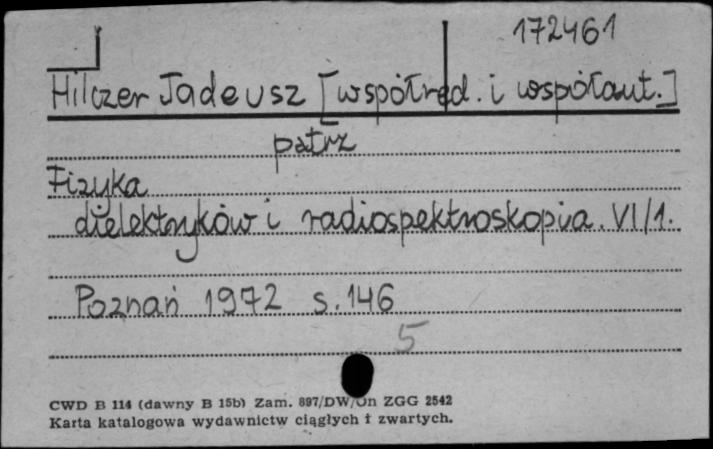 172461
Hilczer Tadeusz [współred. i współaut.]
patrz
Fizyka
dielektryków i radiospektroskopia. VI/1.
Poznań 1972 s. 146
5
CWD B 114 (dawny B 15b) Zam. 897/DW/On ZGG 2542
Karta katalogowa wydawnictw ciągłych i zwartych.